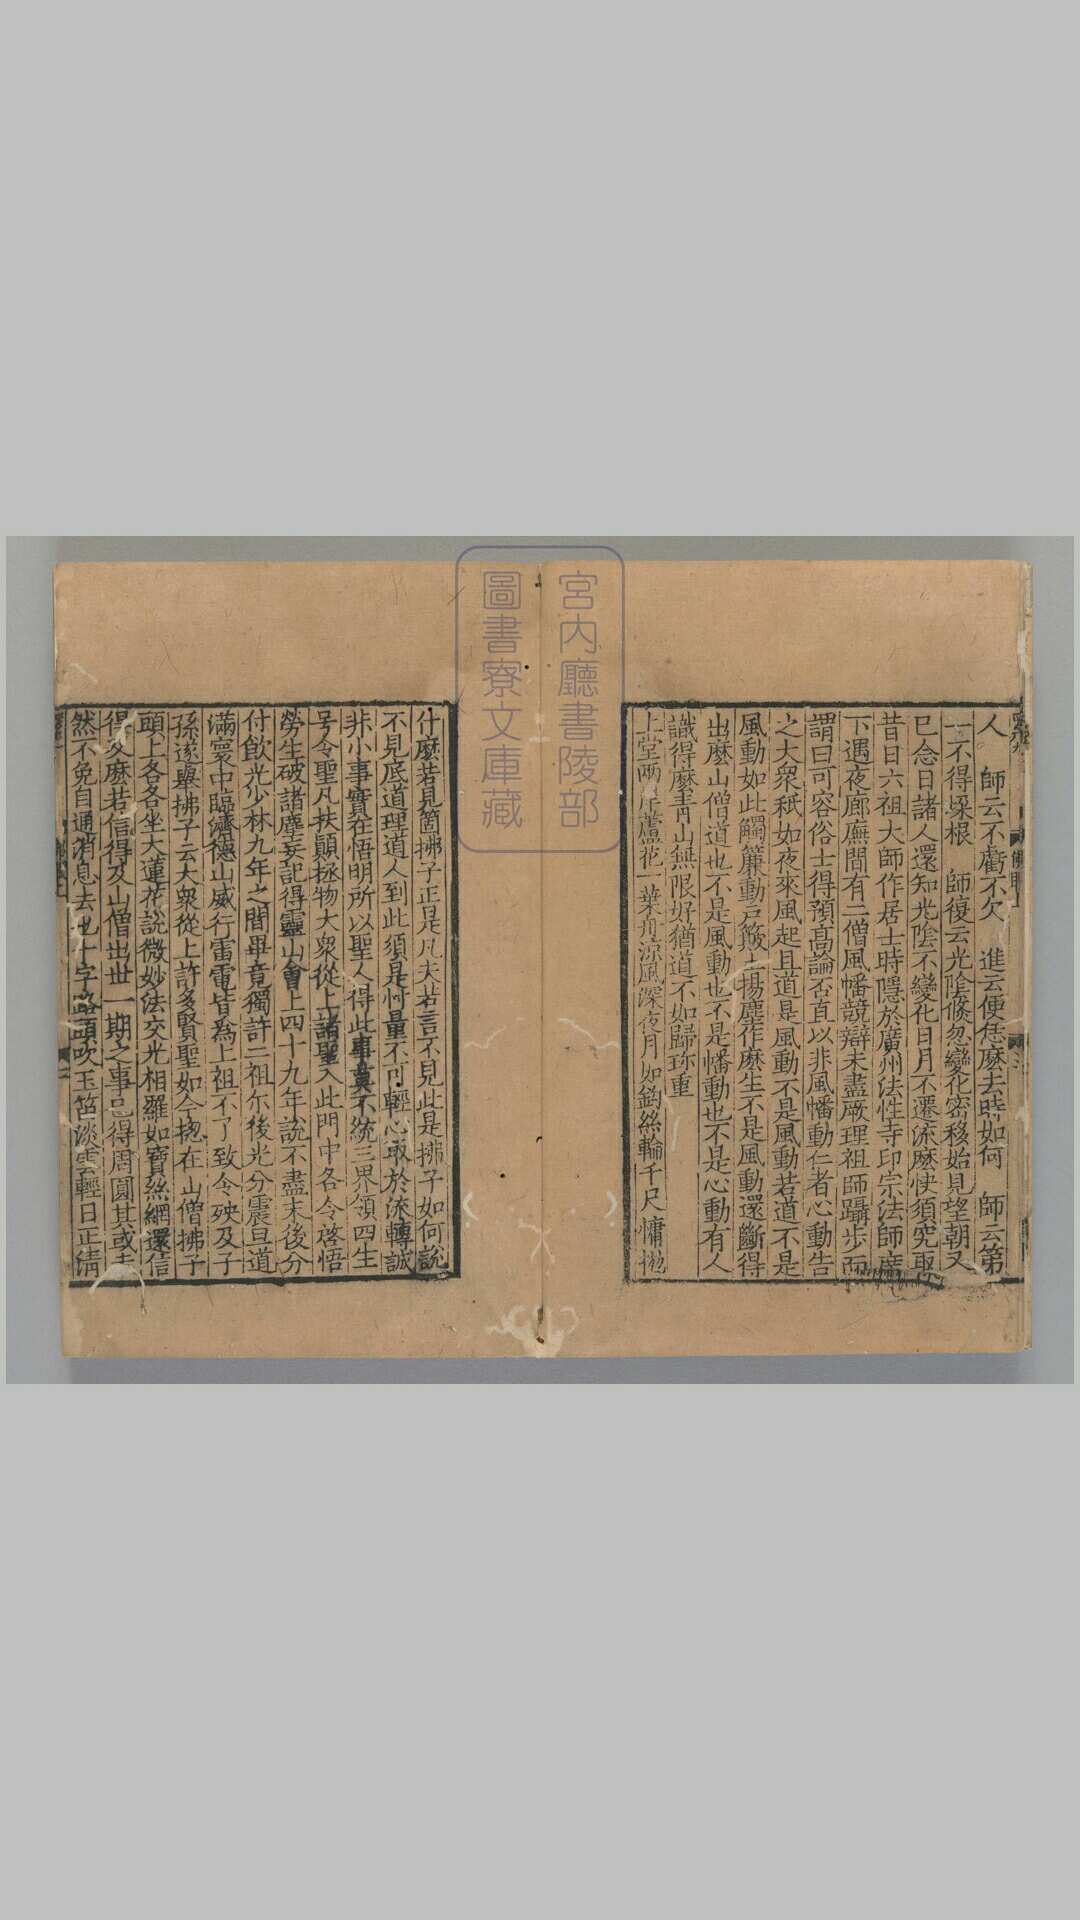 人　師云不虧不欠　進云便恁麽去時如何　師云第
一不得垜根　師復云光陰倐忽變化密移始見望朝又
已念日諸人還知光陰不變化日月不遷流麽快須究取
昔日六祖大師作居士時隱於廣州法性寺印宗法師席
下遇夜廊廡間有二僧風幡競辯未盡厥理祖師躡歩而
謂曰可容俗士得預髙論否直以非風幡動仁者心動告
之大衆秖如夜來風起且道是風動不是風動若道不是
風動如此觸簾動戸簸土揚塵作麽生不是風動還斷得
出麽山僧道也不是風動也不是幡動也不是心動有人
識得麽青山無限好猶道不如歸珎重
上堂兩岸蘆花一葉舟涼風深夜月如鈎絲輪千尺慵抛
什麽若見箇拂子正是凡夫若言不見此是拂子如何説
不見底道理道人到此須是忖量不可輕心取於流轉誠
非小事實在悟明所以聖人得此事莫不統三界領四生
号令聖凡扶顛拯物大衆從上諸聖入此門中各令啓悟
勞生破諸塵妄記得靈山會上四十九年説不盡末後分
付飲光少林九年之間畢竟獨許二祖尓後光分震旦道
滿寰中臨濟德山威行雷電皆爲上祖不了致令殃及子
孫遂舉拂子云大衆從上許多賢聖如今揔在山僧拂子
頭上各各坐大蓮花説微妙法交光相羅如寶絲網還信
得及麽若信得及山僧出世一期之事已得周圓其或未
然不免自通消息去也十字路頭吹玉笛淡雲輕日正清
宮内廳書陵部
圖書寮文庫藏